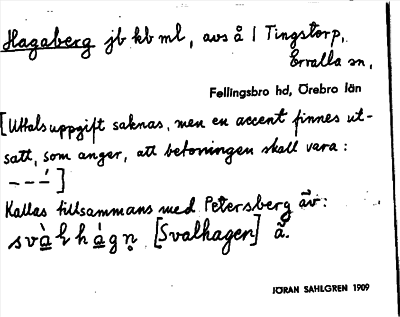 Hagaberg jb kb ml, avs å 1 Tingstorp,
Ervalla sn,
Fellingsbro hd, Örebro län
[Uttalsuppgift saknas, men en accent finnes ut-
satt, som anger, att betoningen skall vara:
– – –́ ]
Kallas tillsammans med Petersberg äv:
[Svalhagen] ä̃.
JÖRAN SAHLGREN 1909